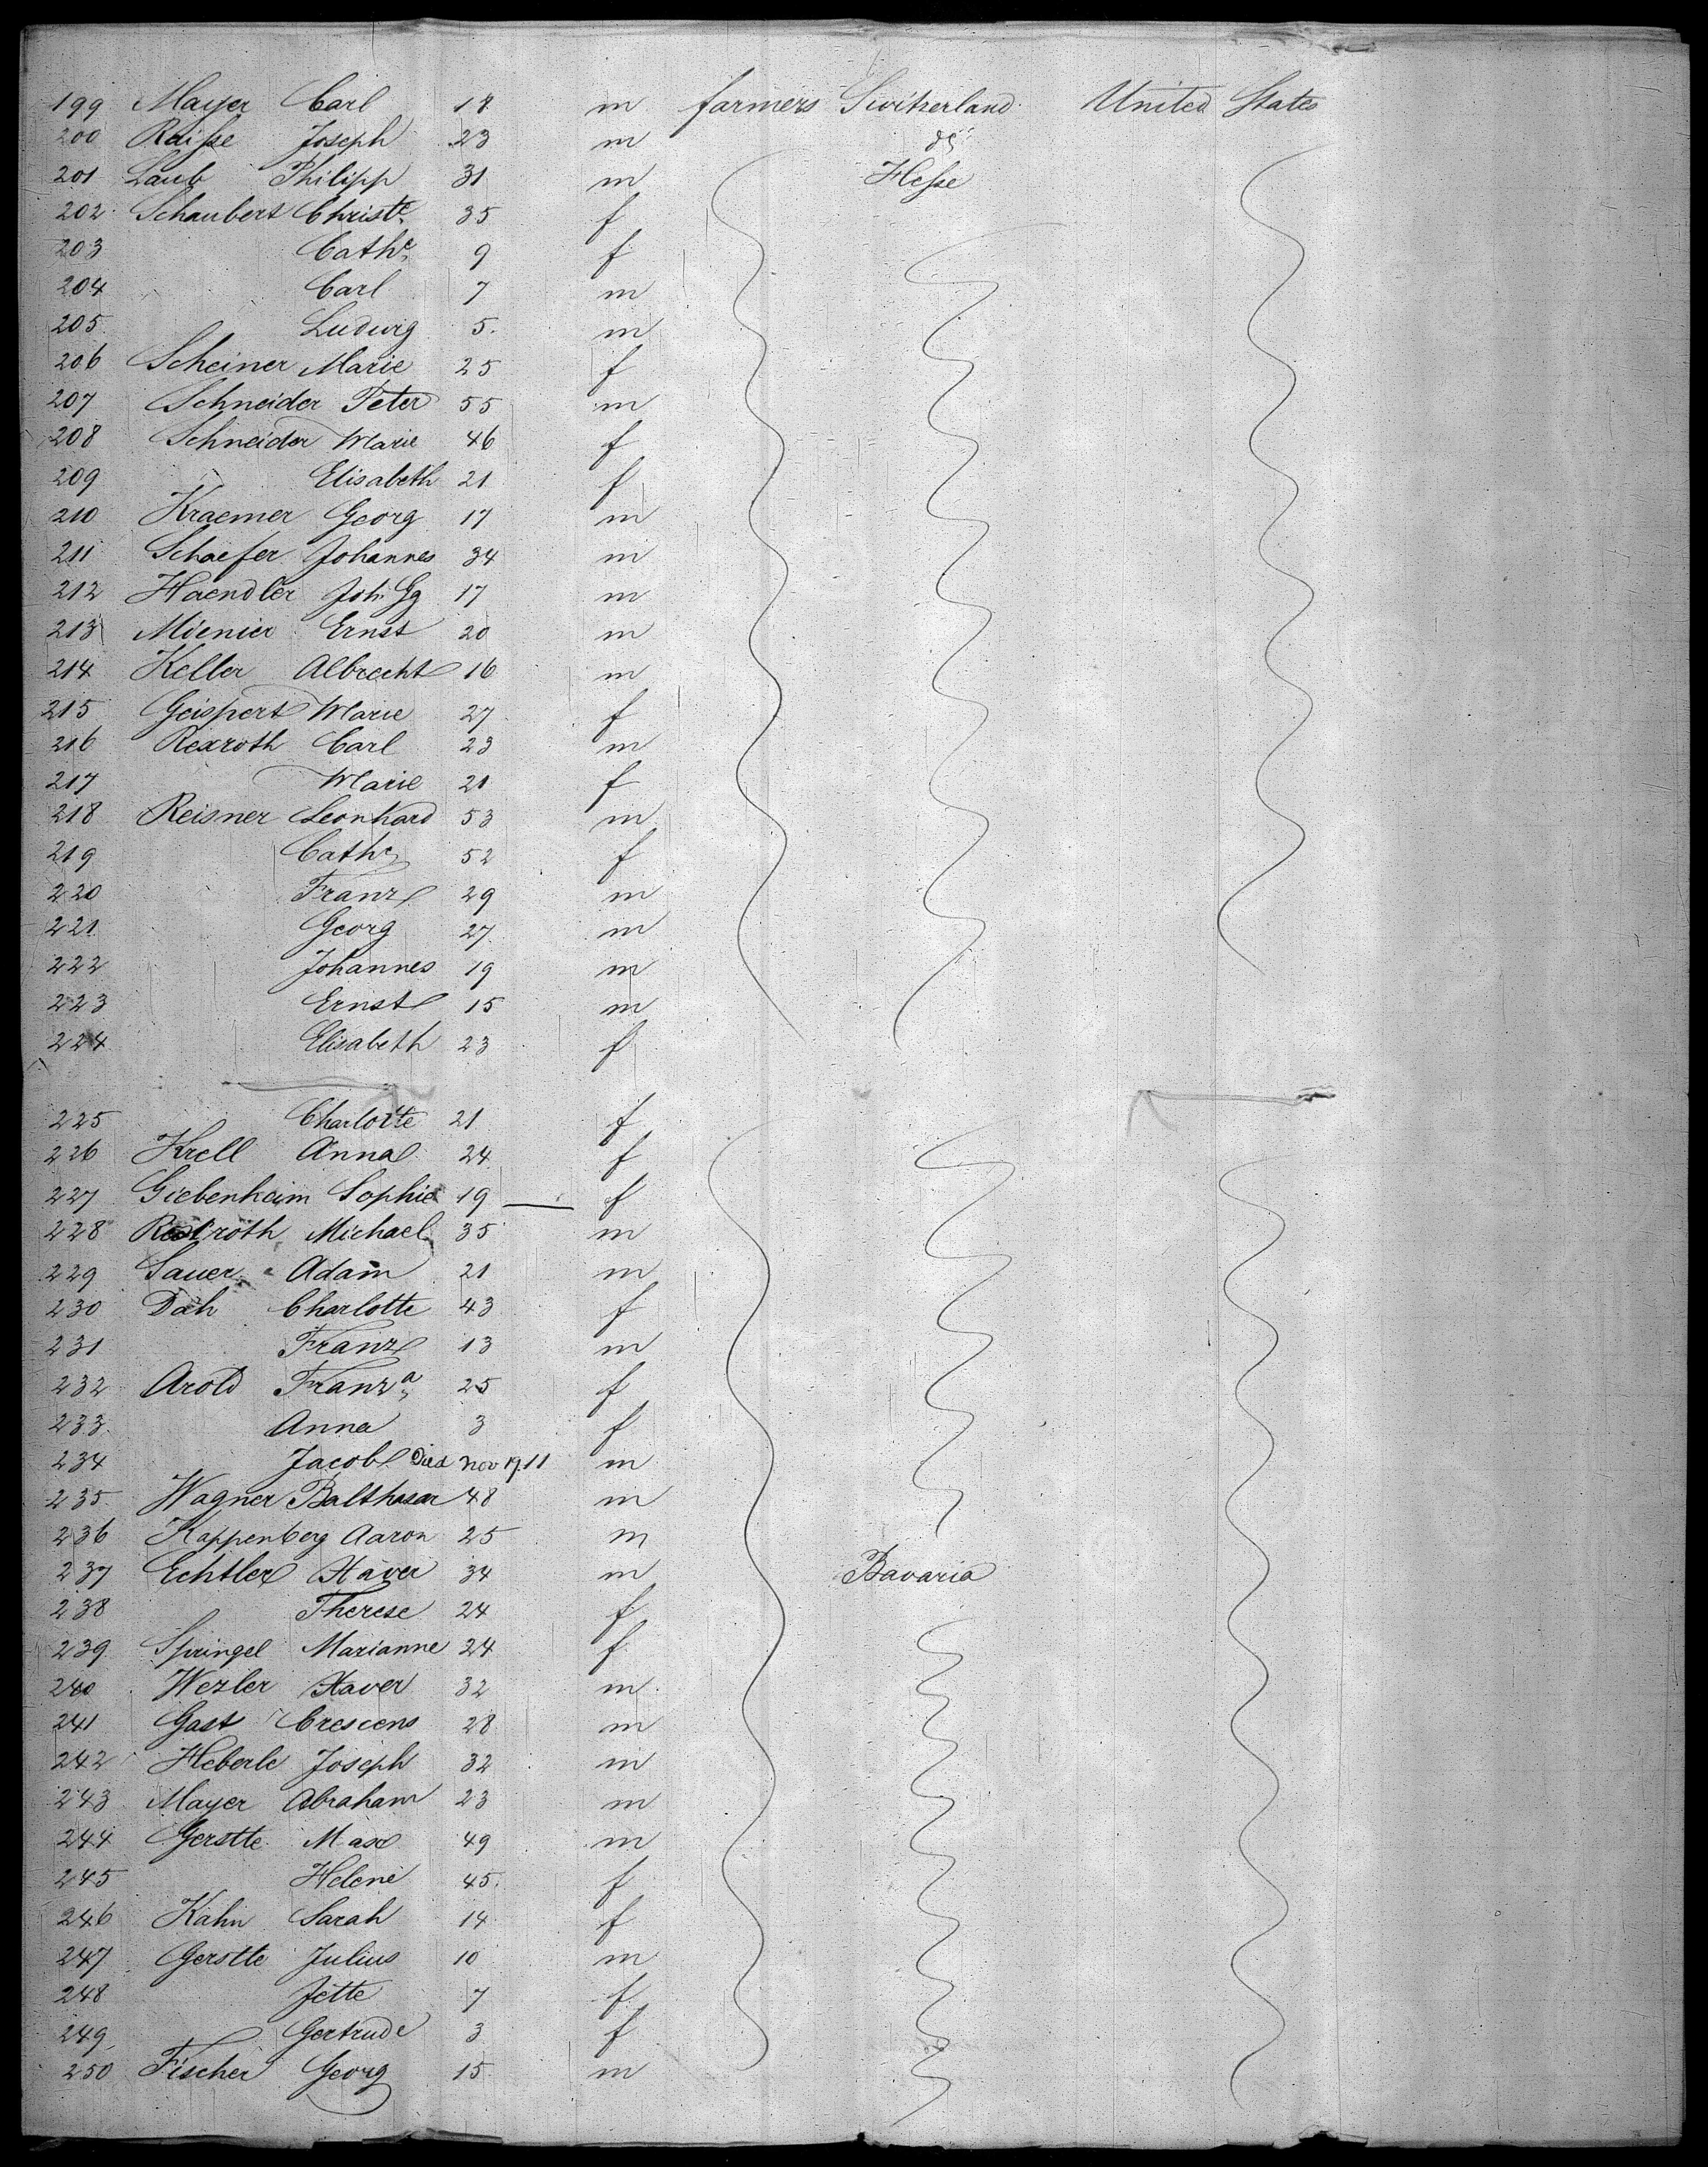 199 Mayer Carl 18 m farmers Switzerland United States
200 Raisse Joseph 23 m do
201 Laub Philipp 31 m Hesse
202 Schaubert Christe 35 f
203 Cathe 9 f
204 Carl 7 m
205 Ludwig 5 m
206 Scheiner Marie 25 f
207 Schneider Peter 55 m
208 Schneider Marie 46 f
209 Elisabeth 21 f
210 Kraemer Georg 17 m
211 Schaefer Johannes 34 m
212 Haendler Joh. Gg 17 m
213 Ernst 20 m
214 Keller Albrecht 16 m
215 Geispert Marie 27 f
216 Rexroth Carl 23 m
217 Marie 21 f
218 Reisner Leonhard 53 m
219 Cathe 52 f
220 Franz 29 m
221 Georg 27 m
222 Johannes 19 m
223 Ernst 15 m
224 Elisabeth 23 f
225 Charlotte 21 f
226 Krell Anna 24 f
227 Giebenhaim Sophie 19 f
228 Michael 35 m
229 Sauer Adam 21 m
230 Dah Charlotte 43 f
231 Franz 13 m
232 Arold Franza 25 f
233 Anna 3 f
234 Jacob Died Nov 19. 11 m
235 Wagner Balthasar 48 m
236 Kappenberg Aaron 25 m
237 Echtler Xaver 34 m Bavaria
238 Therese 24 f
239 Springel Marianne 24 f
240 Wezler Xaver 32 m
241 Gast Crescens 28 m
242 Heberle Joseph 32 m
243 Mayer Abraham 23 m
244 Gerstte Max 49 m
245 Helene 45 f
246 Kahn Sarah 14 f
247 Gerstte Julius 10 m
248 Jette 7 f
249 Gertrude 3 f
250 Fischer Georg 15 m